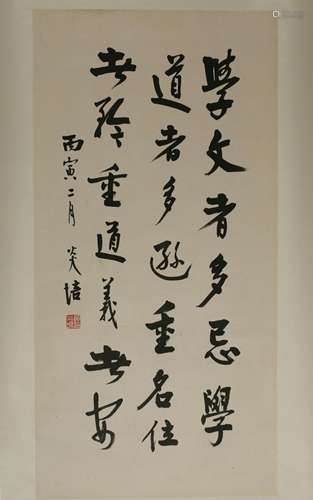 學文者多忌學
道者多遜重名位
者矜重道義者安
丙寅二月炎培